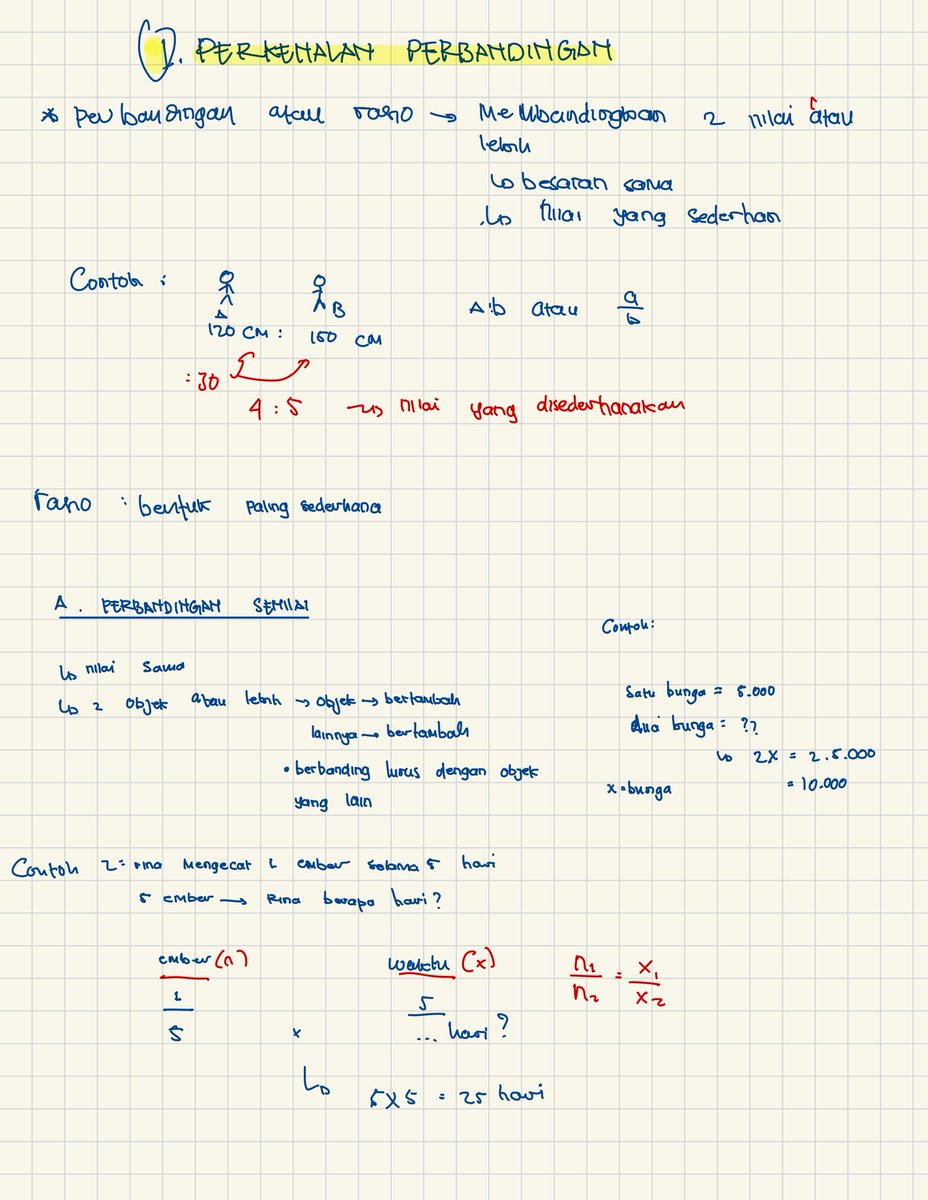 1. PERKENALAN PERBANDINGAN
* Perbandingan atau rasio → Membandingkan 2 nilai atau
lebih
↳ besaran sama
↳ Nilai yang sederhan
Contoh :
A B
120 CM : 150 CM
A:b atau a/b
: 30
4 : 5 → nilai yang disederhanakan
rasio : bentuk paling sederhana
A. PERBANDINGAN SENILAI
↳ nilai sama
↳ 2 objek atau lebih → objek → bertambah
lainnya → bertambah
• berbanding lurus dengan objek
yang lain
Contoh:
Satu bunga = 5.000
dua bunga = ??
↳ 2x = 2.5.000
x = bunga = 10.000
Contoh 2 = rina mengecat 1 ember selama 5 hari
5 ember → Rina berapa hari?
ember (n) waktu (x)
n₁/n₂ = x₁/x₂
1 5
5 x ... hari?
↳ 5x5 = 25 hari